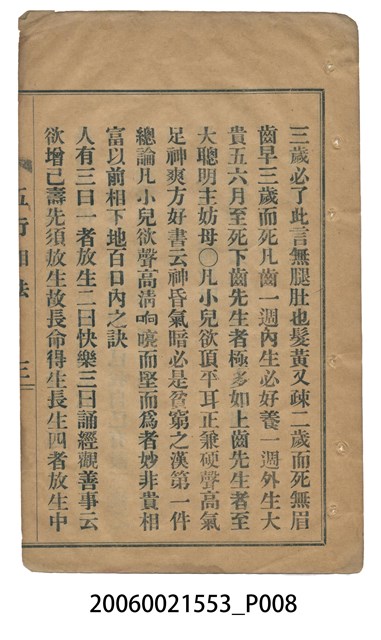 三歲必了此言無腿肚也髮黃又疎二歲而死無眉
齒早三歲而死凡齒一週內生必好養一週外生大
貴五六月至死下齒先生者極多如上齒先生者至
大聰明主妨母〇凡小兒欲頂平耳正兼硬聲高氣
足神爽方好書云神昏氣暗必是貧窮之漢第一件
總論凡小兒欲聲高清响喨而堅而爲者妙非貴相
富以前相下地百日內之訣
人有三曰一者放生二曰快樂三曰誦經觀善事云
欲增己壽先須放生故長命得生長生四者放生中
五行相法 三
20060021553_P008